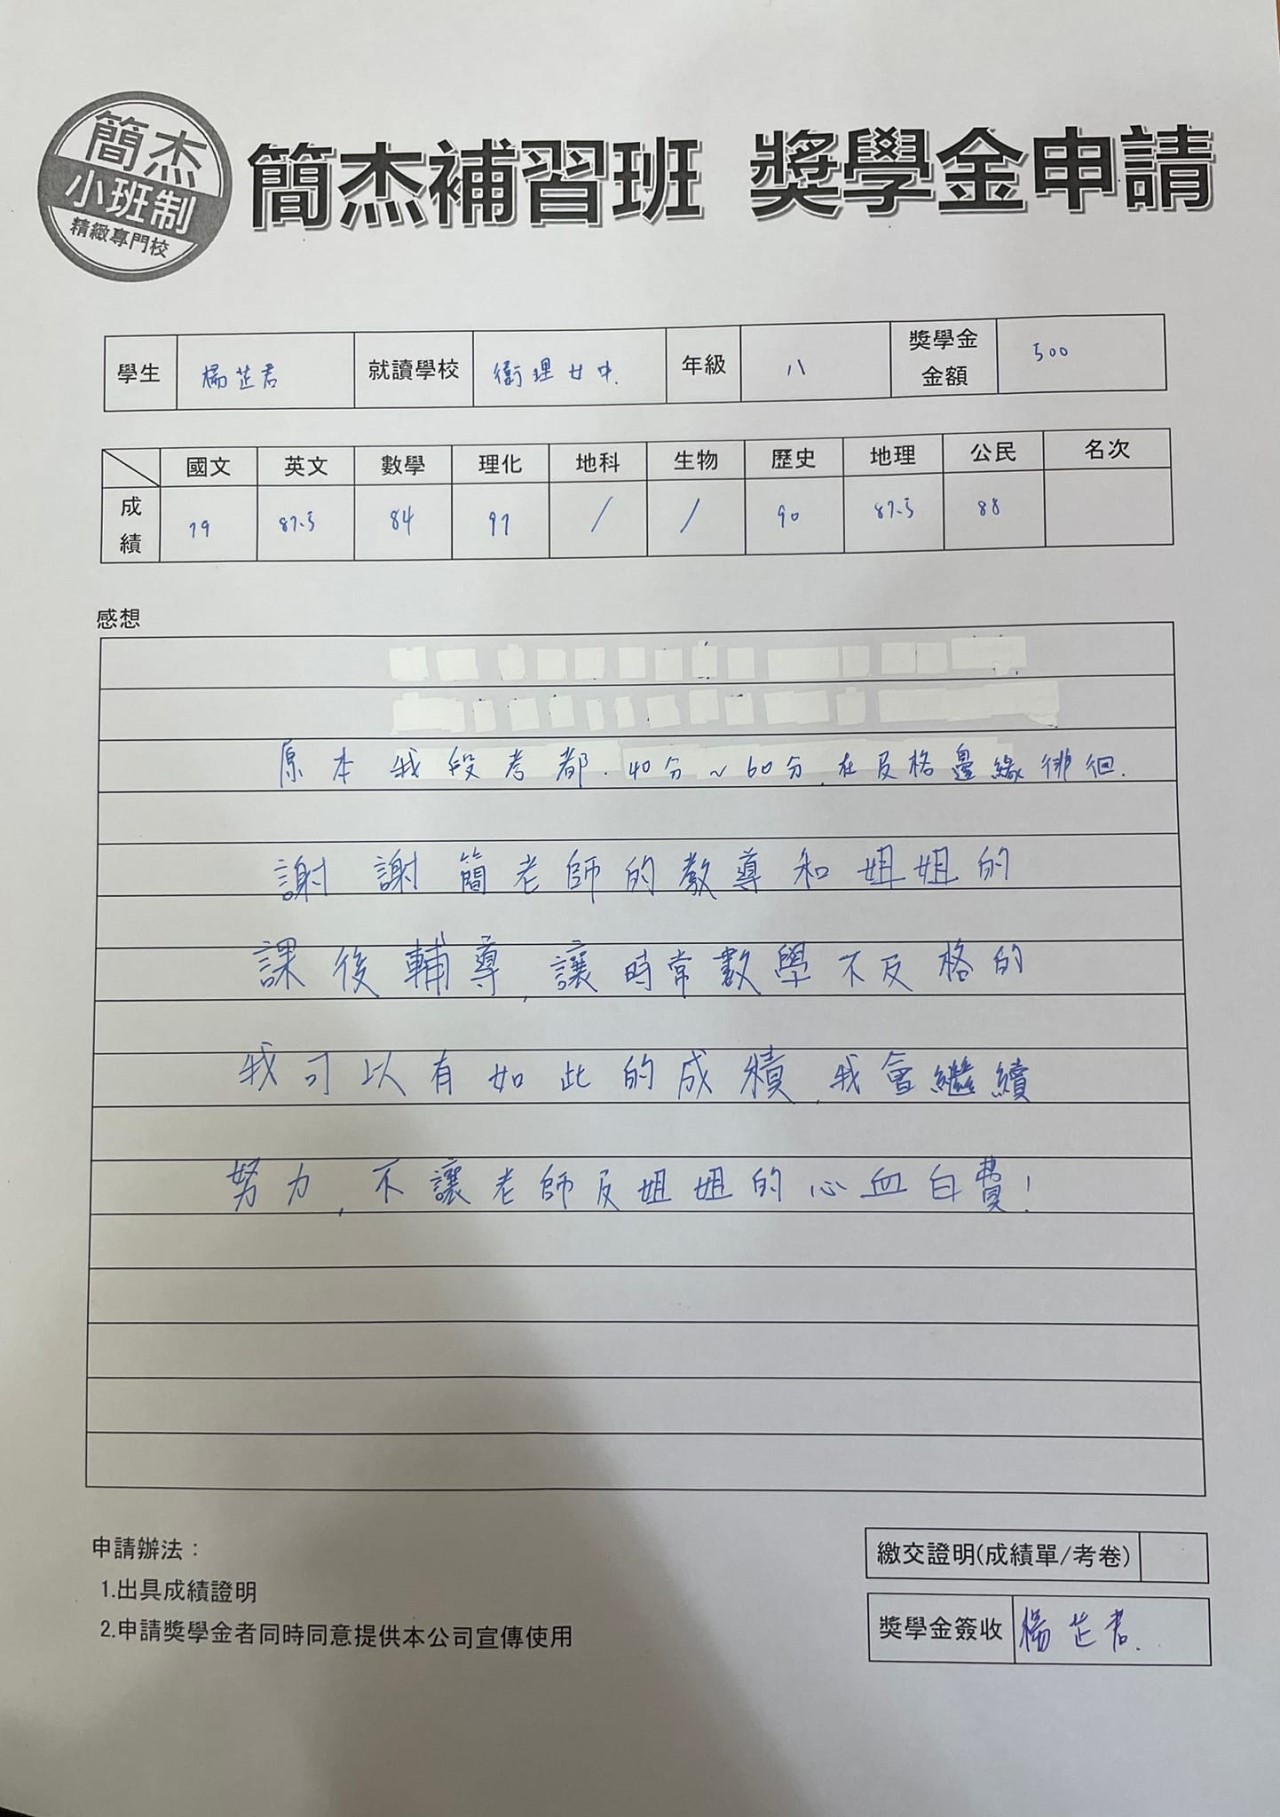 簡杰
小班制
精緻專門校
簡杰補習班 獎學金申請
學生 楊芷君 就讀學校 衛理女中. 年級 八 獎學金金額 500
國文 英文 數學 理化 地科 生物 歷史 地理 公民 名次
成績 79 87.5 84 97 / / 90 87.5 88
感想
原本我段考都.40分~60分,在及格邊緣徘徊.
謝謝簡老師的教導和姐姐的
課後輔導,讓時常數學不及格的
我可以有如此的成績,我會繼續
努力,不讓老師及姐姐的心血白費!
申請辦法：
1.出具成績證明
2.申請獎學金者同時同意提供本公司宣傳使用
繳交證明(成績單/考卷)
獎學金簽收 楊芷君.